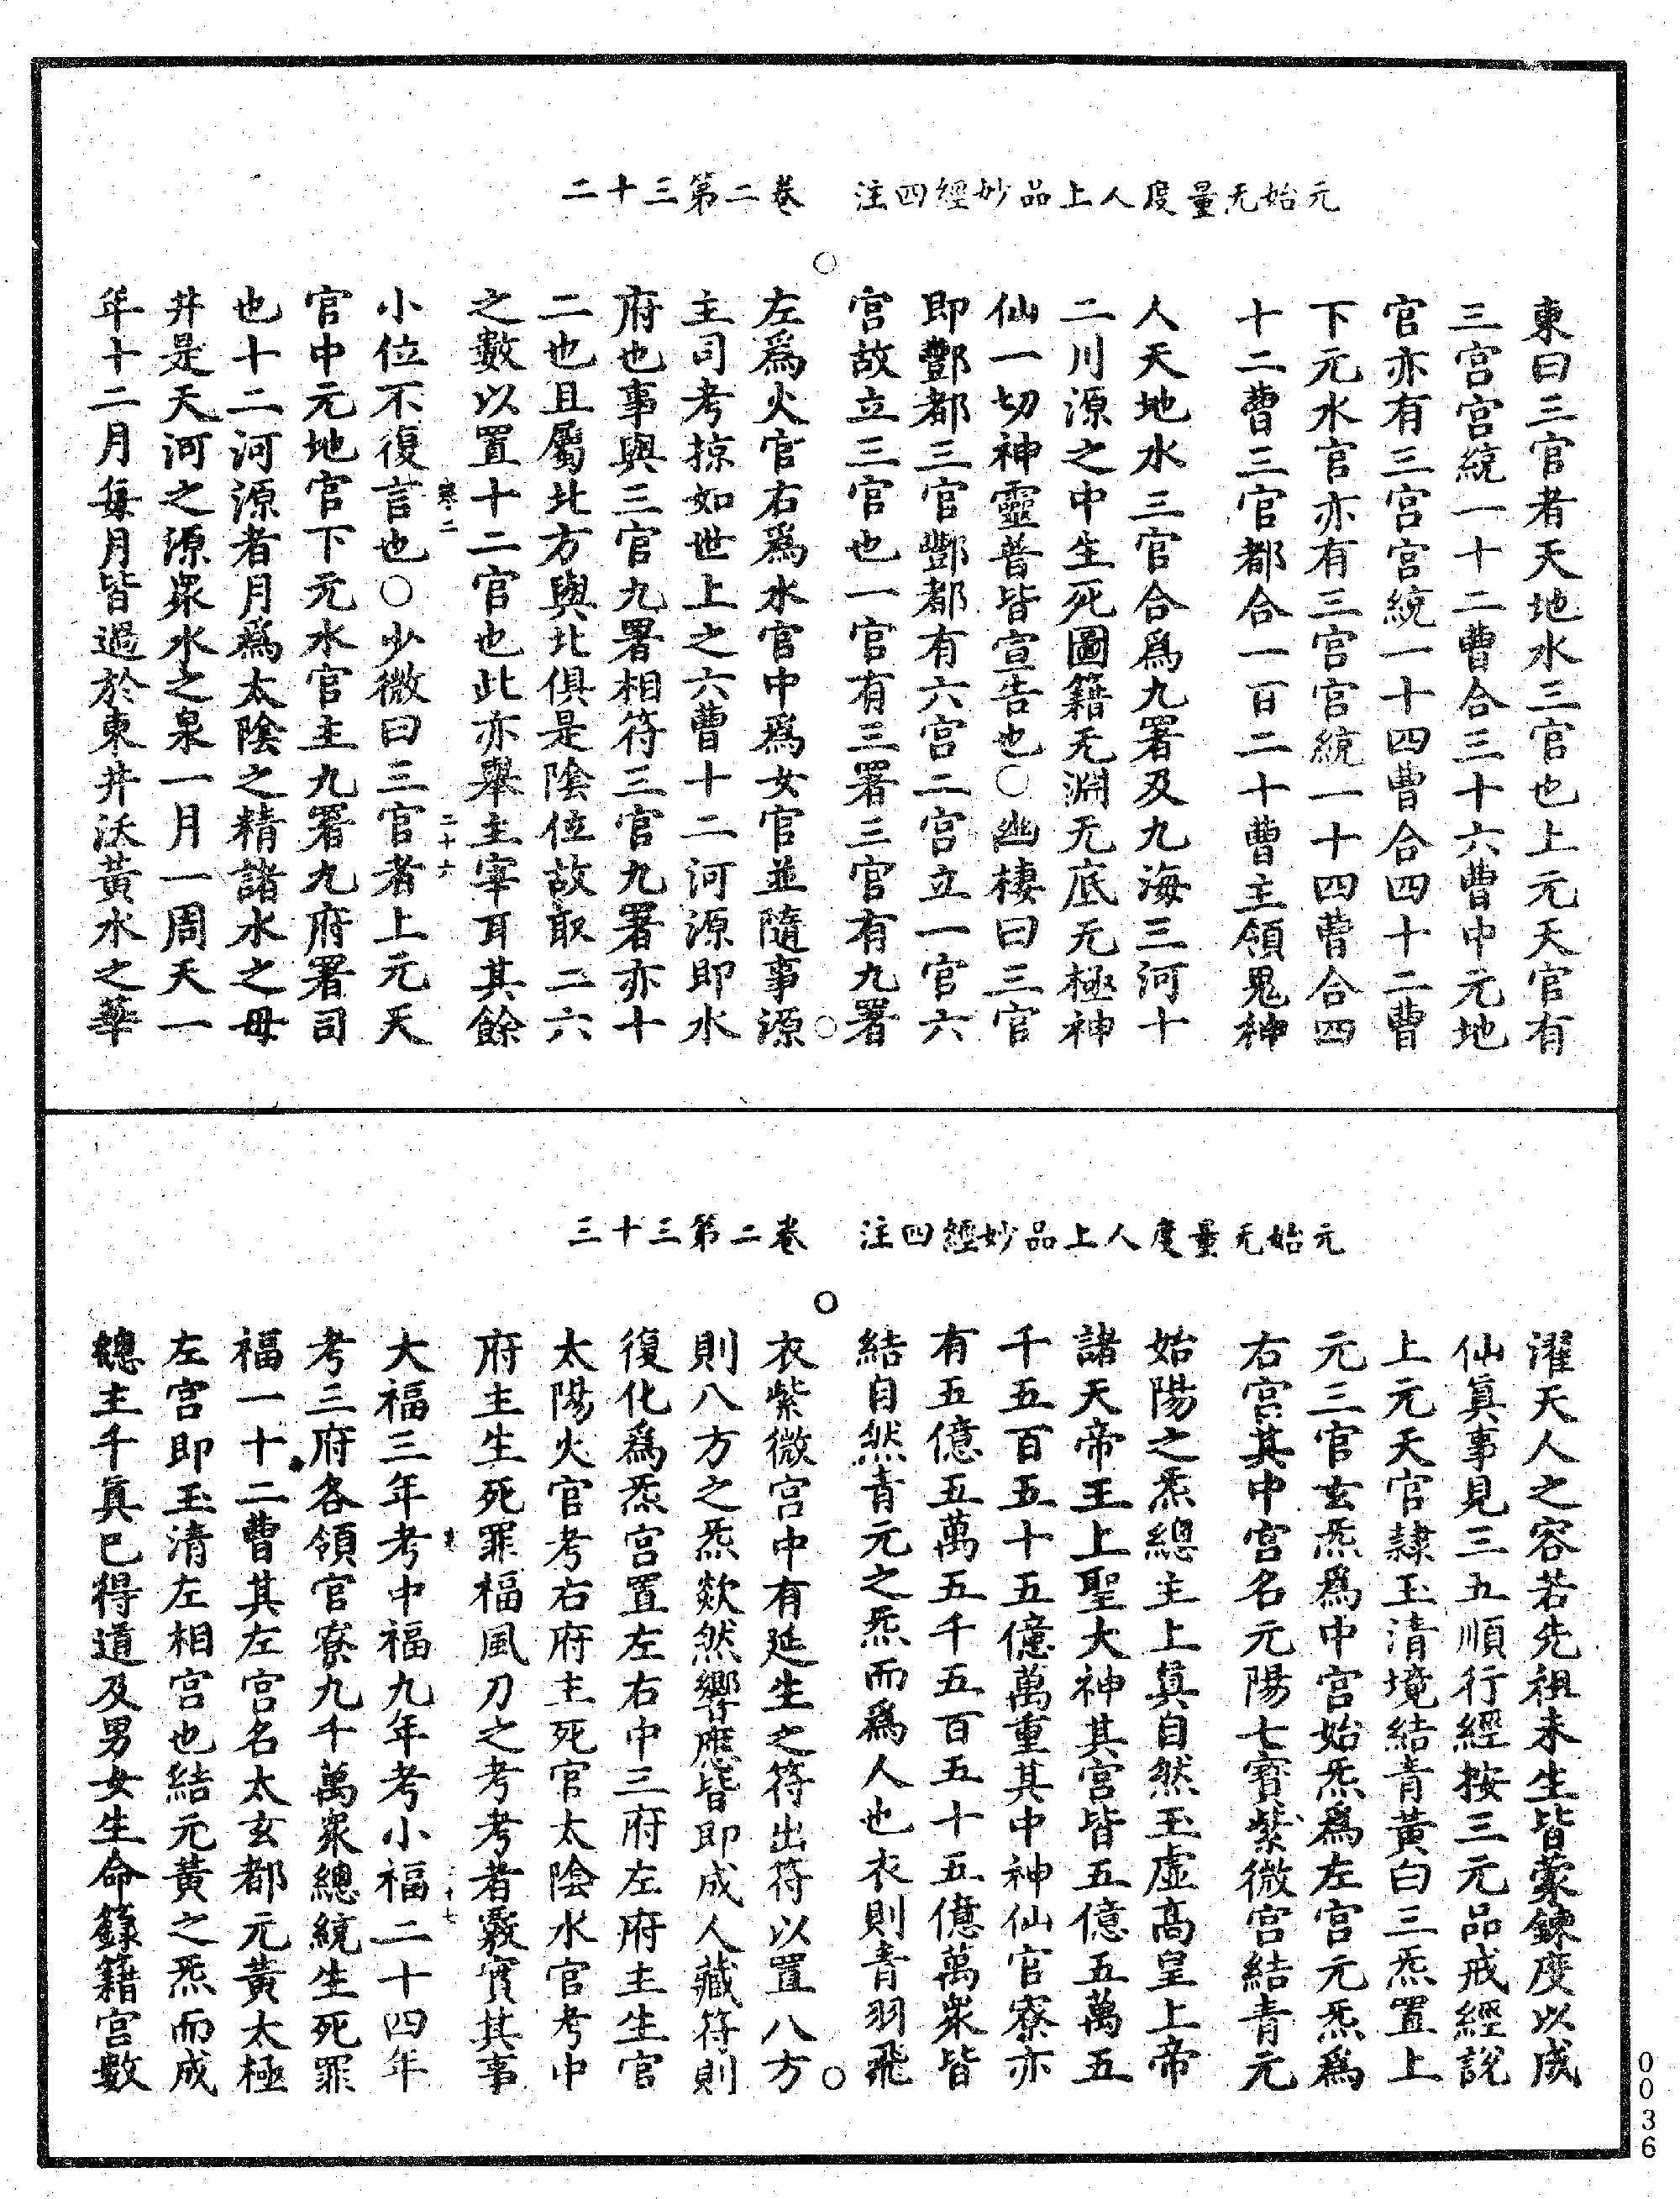 元始无量度人上品妙經四注　卷二第三十二
東曰三官者天地水三官也上元天官有
三宮宮統一十二曹合三十六曹中元地
官亦有三宮宮統一十四曹合四十二曹
下元水官亦有三宮宮統一十四曹合四
十二曹三官都合一百二十曹主領鬼神
人天地水三官合爲九署及九海三河十
二川源之中生死圖籍无淵无底无極神
仙一切神靈普皆宣告也○幽棲曰三官
即酆都三官酆都有六宮二宮立一官六
宮故立三官也一官有三署三官有九署
左爲火官右爲水官中爲女官並隨事源
主司考掠如世上之六曹十二河源即水
府也事與三官九署相符三官九署亦十
二也且屬北方與北俱是陰位故取二六
之數以置十二官也此亦舉主宰耳其餘
卷二　二十六
小位不復言也○少微曰三官者上元天
官中元地官下元水官主九署九府署司
也十二河源者月爲太陰之精諸水之母
井是天河之源衆水之泉一月一周天一
年十二月每月皆過於東井沃黃水之華
元始无量度人上品妙經四注　卷二第三十三
濯天人之容若先祖未生皆蒙鍊度以成
仙眞事見三五順行經按三元品戒經說
上元天官隸玉清境結青黃白三炁置上
元三官玄炁爲中宮始炁爲左宮元炁爲
右宮其中宮名元陽七寳紫微宮結青元
始陽之炁總主上眞自然玉虛高皇上帝
諸天帝王上聖大神其宮皆五億五萬五
千五百五十五億萬重其中神仙官寮亦
有五億五萬五千五百五十五億萬衆皆
結自然青元之炁而爲人也衣則青羽飛
衣紫微宮中有延生之符出符以置八方
則八方之炁欻然響應皆即成人藏符則
復化爲炁宮置左右中三府左府主生官
太陽火官考右府主死官太陰水官考中
府主生死罪福風刀之考考者覈實其事
卷　二十七
大福三年考中福九年考小福二十四年
考三府各領官寮九千萬衆總統生死罪
福一十二曹其左宮名太玄都元黃太極
左宮即玉清左相宮也結元黃之炁而成
總主千眞已得道及男女生命籙籍宮數
0036